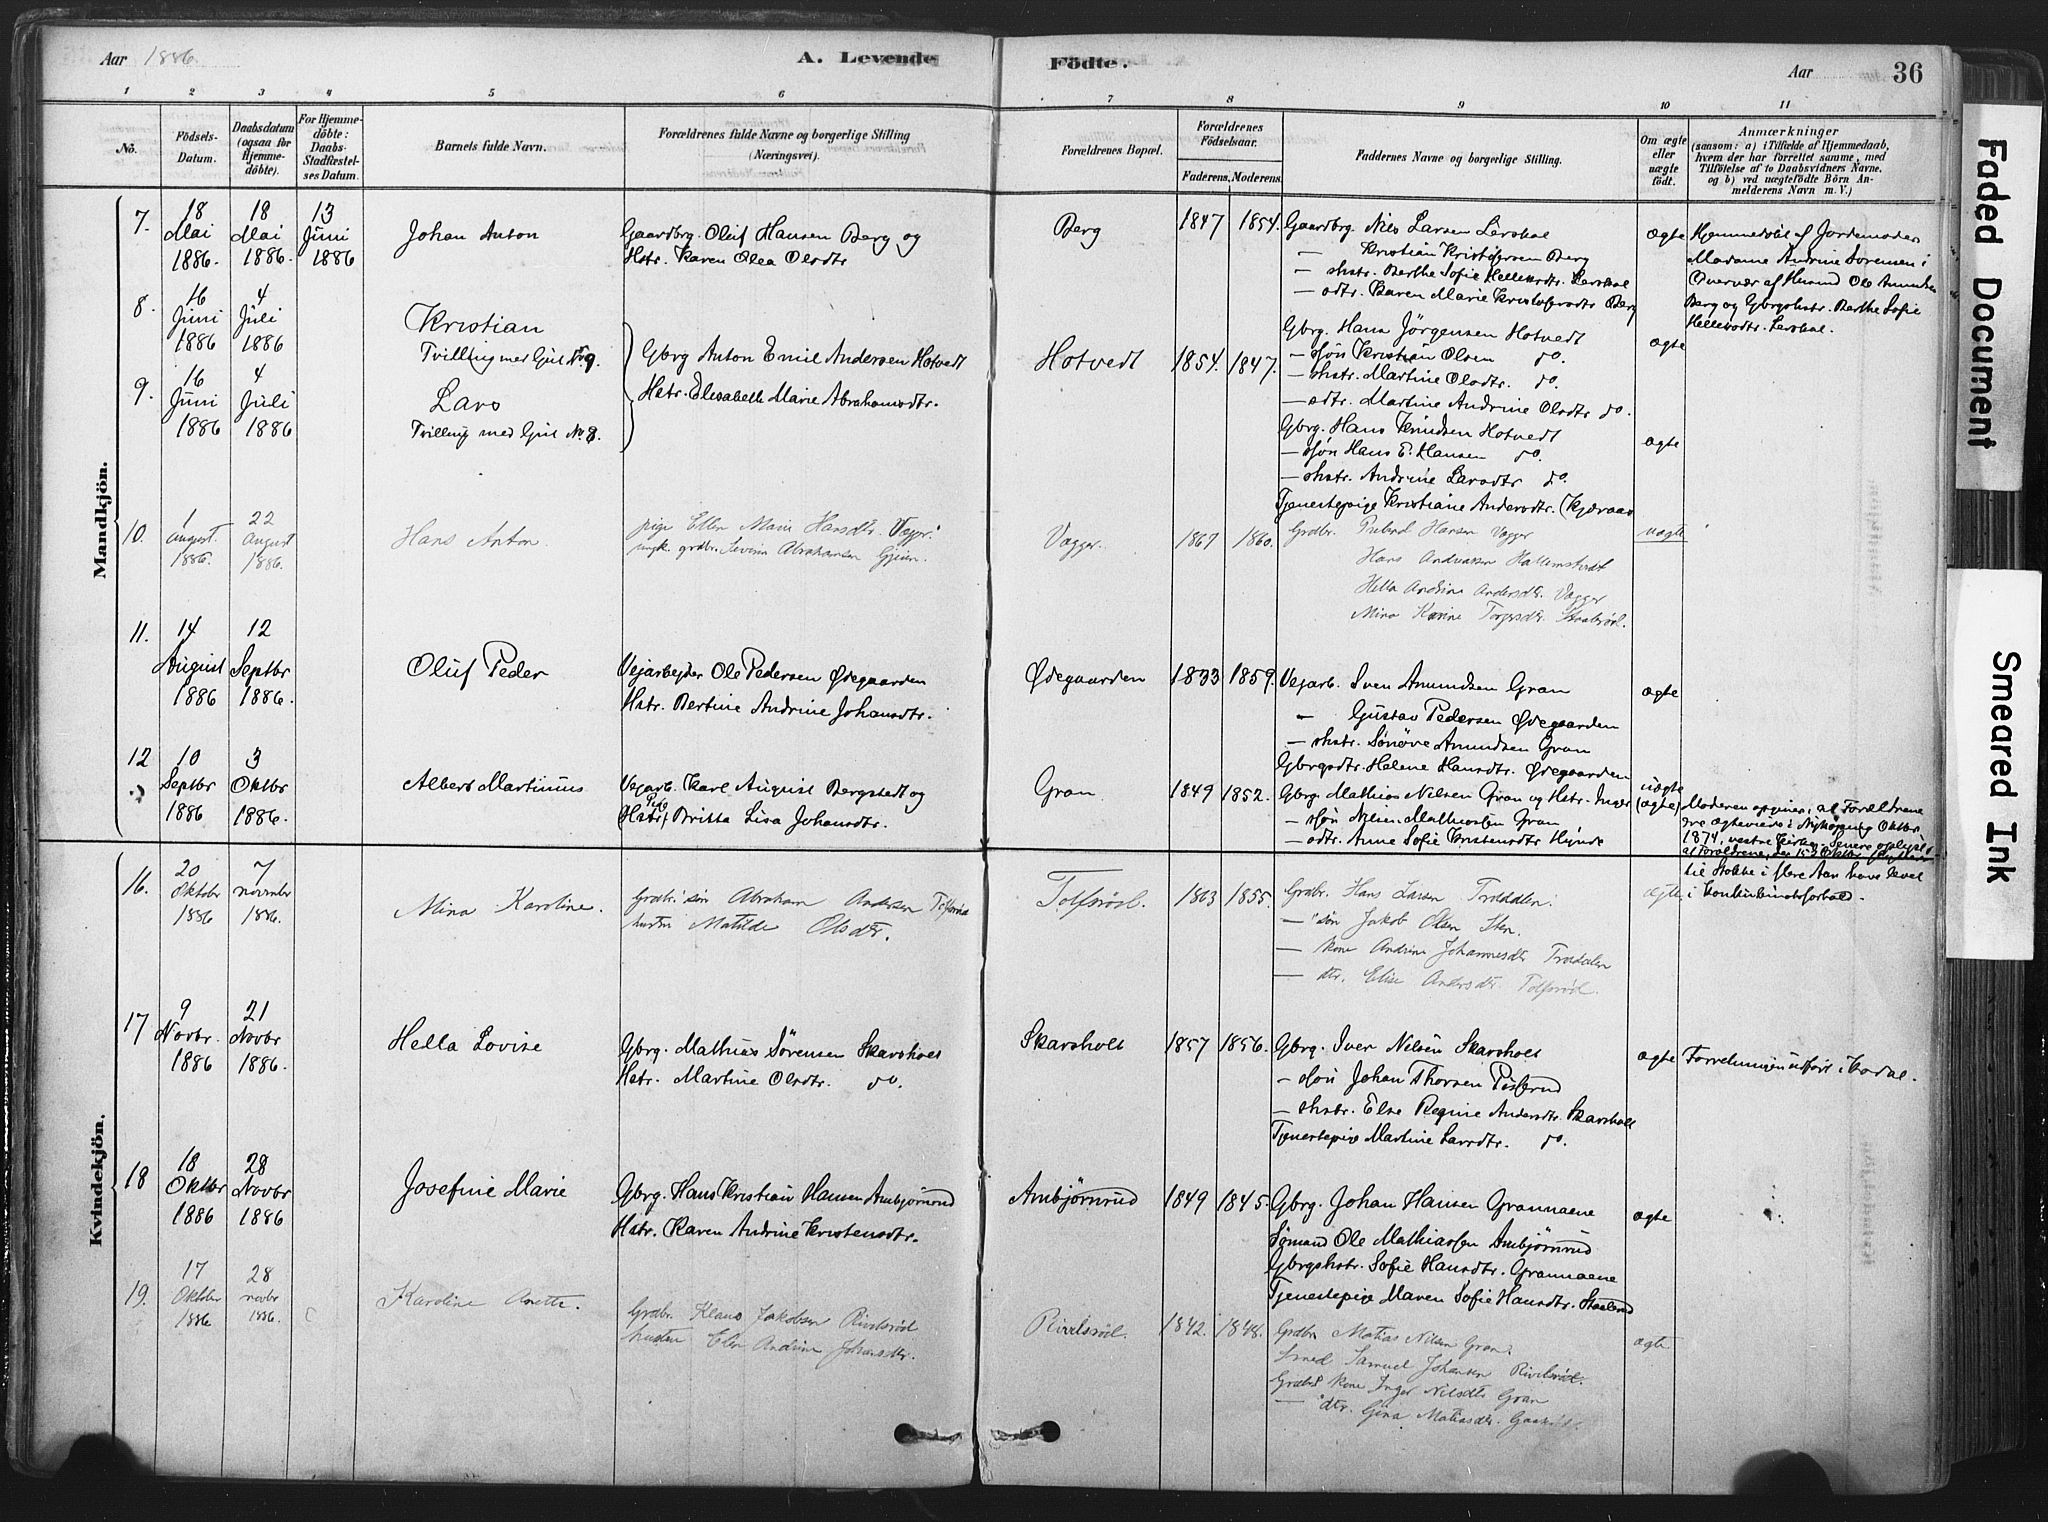 Aar 1886.
A. Levende Födte.
Aar
36
1 2 3 4 5 6 7 8 9 10 11
No.
Födsels-Datum.
Daabsdatum (ogsaa for Hjemme-döbte).
For Hjemme-döbte: Daabs-Stadfæstel-ses Datum.
Barnets fulde Navn.
Forældrenes fulde Navne og borgerlige Stilling (Næringsvei).
Forældrenes Bopæl.
Forældrenes Födselsaar.
Faderens. Moderens.
Faddernes Navne og borgerlige Stilling.
Om ægte eller uægte födt.
Anmærkninger
(saasom: a) i Tilfælde af Hjemmedaab, hvem der har forrettet samme, med Tilföielse af to Daabsvidners Navne, og b) ved uægtefödte Börn An-melderens Navn m. V.)
Mandkjön.
7.
18 Mai 1886.
18 Mai 1886.
13 Juni 1886
Johan Anton
Gaardbrg. Oluf Hansen Berg og
Hstr. Karen Olea Olsdtr
Berg
1847 1854.
Gaardbrg. Nils Larsen Lerskal
— Kristian Kristofersen Berg
— shstr. Berthe Sofie Hellesdtr. Lerskal
— sdtr. Karen Marie Kristofersdtr Berg
ægte
Hjemmedöbt af Jordemoder
Madame Andrine Sørensen i
Overvær af Husmd Ole Amundsen
Berg og Gbrgshstr. Berthe Sofie
Hellesdtr. Lerskal.
8.
16 Juni 1886
4 Juli 1886
Kristian
Tvilling med Gut No 9.
Gbrg Anton Emil Andersen Hotvedt
Hstr. Elisabeth Marie Abrahamsdtr.
Hotvedt
1854. 1847.
Gbrg. Hans Jörgensen Hotvedt
— sön Kristian Olsen do.
— shstr. Martine Olsdtr. do.
— sdtr. Martine Andrine Olsdtr do.
ægte
9.
16 Juni 1886
4 Juli 1886
Lars
Tvilling med Gut No 8.
Gbrg. Hans Knudsen Hotvedt
— sön Hans E. Hansen do.
— shstr. Andrine Larsdtr do.
Tjenestepige Kristiane Andersdtr. Kjæraas
ægte
10.
1 August 1886.
22 August 1886.
Hans Anton.
pige Ellen Marie Hansdtr. Vegger.
ungk. grdbr. Severin Abrahamsen Gjein.
Vegger.
1867 1860.
Grdbr. Hansen Vegger
Hans Andreassen
Hella Andrine Andersdtr. Vegger
Mina Karine Torgersdtr.
uægte
11.
14 August 1886
12 Septbr 1886.
Oluf Peder
Vejarbejder Ole Pedersen Ødegaarden
Hstr. Bertine Andrine Johansdtr.
Ødegaarden
1833 1859.
Vejarb. Sven Amundsen Gran
— Gustav Pedersen Ødegaarden
— shstr. Sønøve Amundsen Gran
Gbrgsdtr. Helene Hansdtr. Ødegaarden
ægte
12
10 Septbr 1886
3 Oktbr 1886.
Albert Martinius
Vejarb. Karl August Bergstedt og
(Hstr.) Pige Britta Lisa Johansdtr.
Gran
1849 1852.
Gbrg. Mathias Nilsen Gran og Hstr. Inger
— sön Nilsen Mathiassen Gran
— sdtr. Anne Sofie Kristensdtr Hynde
uægte
(ægte)
Moderen opgiver, at Forældrene
ere ægteviede i Nykøping Oktbr
1874, vestre Kirke. Senere oplyst
at Forældrene,
til Stokke i flere Aar have levet
i Konkubinatsforhold.
Kvindekjön.
16.
20 Oktober 1886
7 november 1886.
Mina Karoline.
Grdbr. søn Abraham Andersen Tolfsröd
hustru Matilde Olsdtr.
Tolfsröd.
1863 1855.
Grdbr. Hans Larsen Trosdalen.
— " søn Jakob Olsen Sten.
— kone Andrine Johannesdtr Trosdalen
— dtr. Elise Andersdtr. Tolfsröd.
ægte
17
9 Novbr. 1886
21 Novbr 1886.
Hella Lovise
Gbrg. Mathias Sörensen Skarsholt
Hstr. Martine Olsdtr. do.
Skarsholt
1857 1856.
Gbrg. Iver Nilsen Skarsholt
— sön Johan Thorsen Pisserud
— shstr. Else Regine Andersdtr. Skarsholt
Tjenestepige Martine Larsdtr. do.
ægte
Forretningen udført i Kodal.
18
18 Oktbr 1886
28 Novbr 1886
Josefine Marie
Gbrg. Hans Kristian Hansen Ambjørnrud
Hstr. Karen Andrine Kristensdtr.
Ambjørnrud
1849 1845.
Gbrg. Johan Hansen Grannaene
Sømand Ole Mathiassen Ambjørnrud
Gbrgshstr. Sofie Hansdtr. Grannaene
Tjenestepige Maren Sofie Hansdtr.
ægte
19.
17 Oktober 1886
28 novbr 1886.
Karoline Anette.
Grdbr. Klaus Jakobsen Rivelsröd
hustru Elen Andrine Johansdtr.
Rivelsröd.
1842. 1848.
Grdbr. Matias Nilsen Gran.
Smed Samuel Johansen Rivelsröd.
Grdbr. kone Inger Nilsdtr Gran
— " dtr. Gina Matiasdtr.
ægte
Faded Document
Smeared Ink